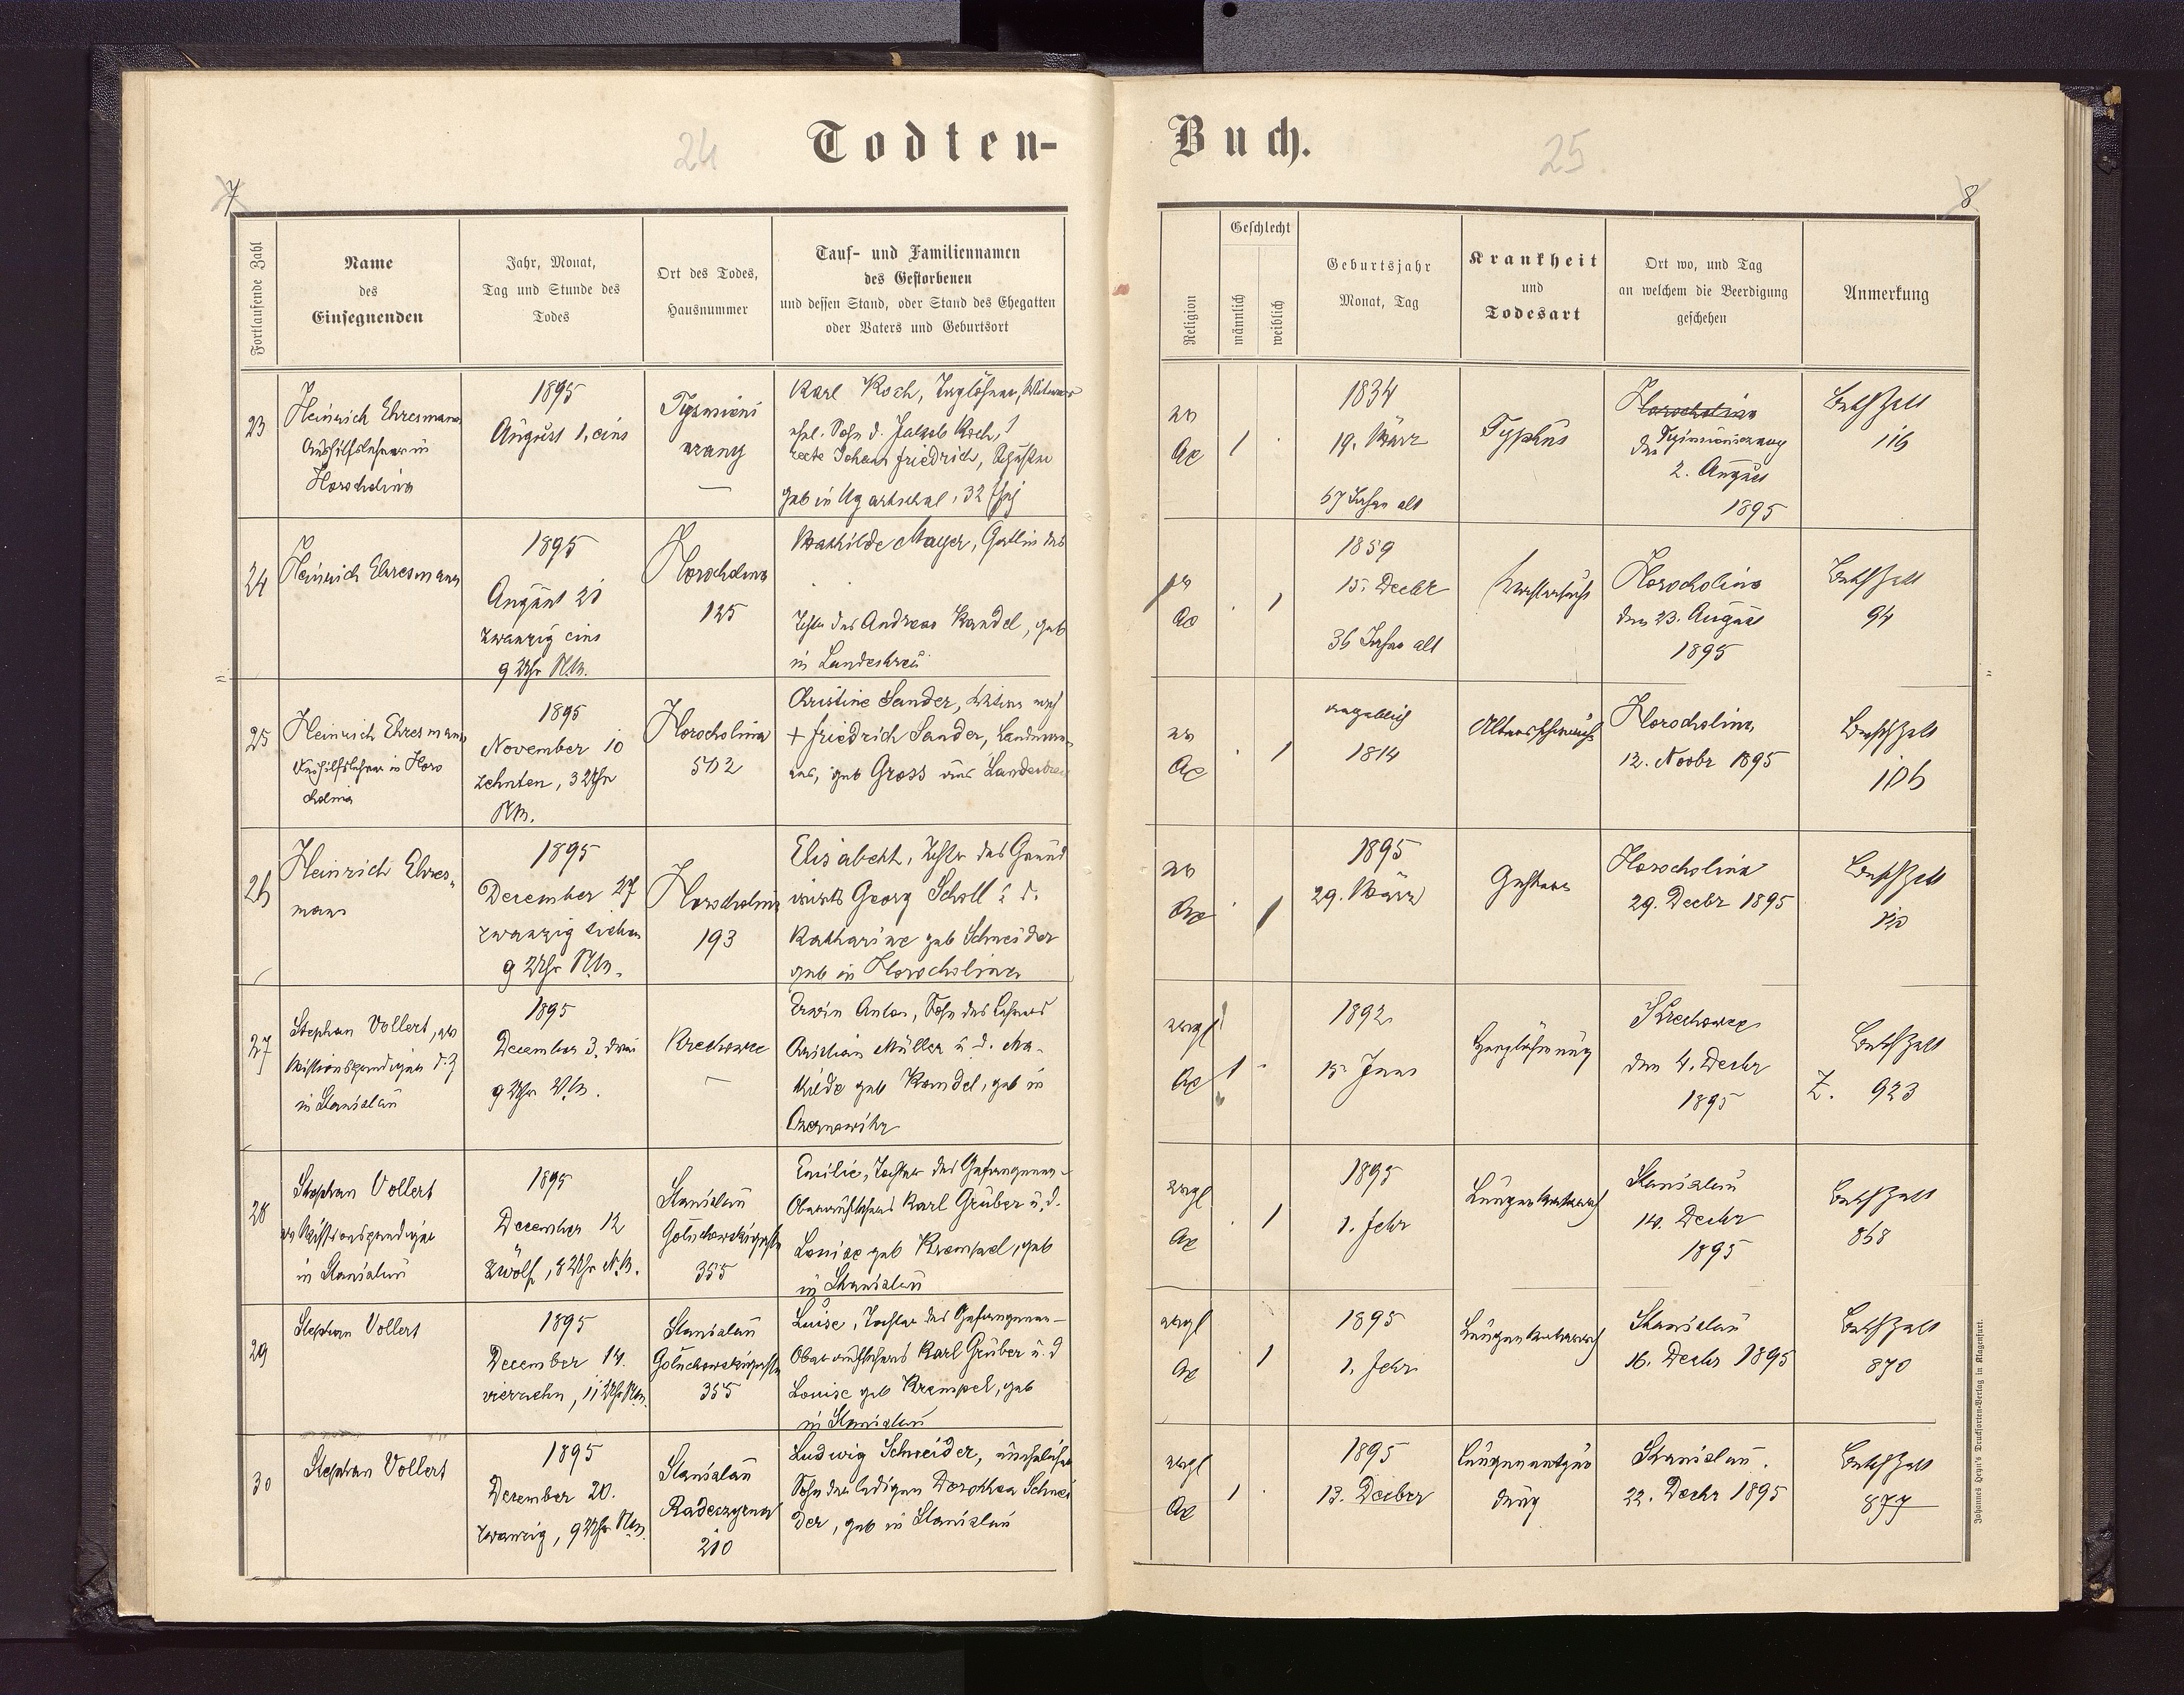 Todten-
Buch.
24
25
7
8
Fortlaufende Zahl
Name
des
Einsegnenden
Jahr, Monat,
Tag und Stunde des
Todes
Ort des Todes,
Hausnummer
Tauf- und Familiennamen
des Gestorbenen
und dessen Stand, oder Stand des Ehegatten
oder Vaters und Geburtsort
Religion
Geschlecht
männlich
weiblich
Geburtsjahr
Monat, Tag
Krankheit
und
Todesart
Ort wo, und Tag
an welchem die Beerdigung
geschehen
Anmerkung
23
Heinrich Ehresmann
Aushilfslehrer in
Horocholina
1895
August 1, eins
Karl Koch, Taglöhner, Witwer
ehel. Sohn d. Jakob Koch,
geb in Ugartsthal, 32
1
1834
19. März
67 Jahre alt
Typhus
2. August
1895
116
24
Heinrich Ehresmann
1895
August 21
zwanzig eins
9 Uhr NM.
Horocholina
125
Mathilde Mayer, Gattin des
Tchtr des Andreas Kandel, geb
in Landestreu
1
1859
15. Decbr
36 Jahre alt
Horocholina
den 23. August
1895
94
25
Heinrich Ehresmann
Aushilfslehrer in Horo
cholina
1895
November 10
zehnten, 3 Uhr
NM.
Horocholina
502
Christine Sander, Witwe nach
+ Friedrich Sander,
geb Gross aus Landestreu
1
angeblich
1814
Altersschwäche
Horocholina,
12. Novbr 1895
106
26
Heinrich Ehres-
mann
1895
December 27
zwanzig sieben
9 Uhr NM.
Horocholina
193
Elisabeth, Tchtr des Grund
wirts Georg Scholl u. d.
Katharine geb Schneider
geb in Horocholina
1
1895
29. März
Horocholina
29. Decbr 1895
27
Stephan Vollert, ev
Missionsprediger d. Z
in Stanislau
1895
December 3, drei
9 Uhr VM.
Krechowce
Erwin Anton, Sohn des Lehrers
Christian Müller u. d. Ma-
thilde geb Kandel, geb in
Czernowitz
evgl
1
1892
15. Juni
Herzlähmung
Krechowce
den 4. Decbr
1895
Z. 923
28
Stephan Vollert
ev Missionsprediger
in Stanislau
1895
December 12
zwölf, 8 Uhr NM.
Stanislau
355
Emilie, Tochter des Gefangenen-
Oberaufsehers Karl Gruber u. d.
Louise geb Krempel, geb
in Stanislau
evgl
1
1895
1. Febr
Lungenkatarrh
Stanislau
14. Decbr
1895
868
29
Stephan Vollert
1895
December 14.
vierzehn, 11 Uhr NM.
Stanislau
355
Luise, Tochter des Gefangenen-
Oberaufsehers Karl Gruber u. d
Louise geb Krempel, geb
in Stanislau
evgl
1
1895
1. Febr
Lungenkatarrh
Stanislau
16. Decbr 1895
870
30
Stephan Vollert
1895
Dezember 20.
zwanzig, 9 Uhr NM.
Stanislau
210
Ludwig Schneider, unehelicher
Sohn der ledigen Dorothea Schnei
der, geb in Stanislau
evgl
1
1895
13. Decber
Lungenentzün
dung
Stanislau.
22. Decbr 1895
877
Johannes Heyn's Drucksorten-Verlag in Klagenfurt.